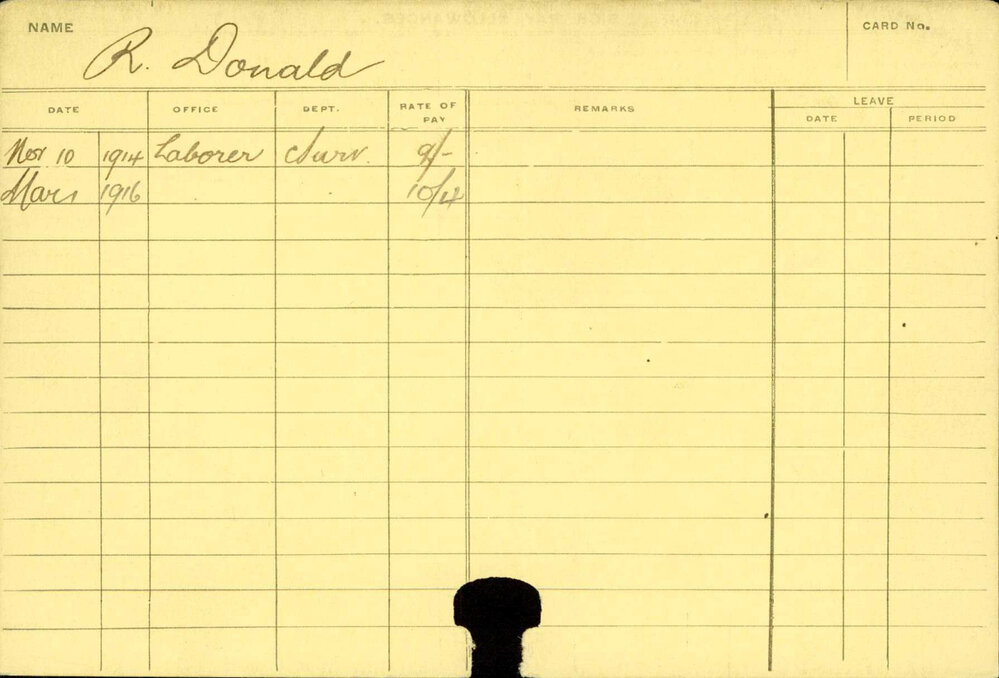 NAME R. Donald CARD No.
DATE OFFICE DEPT. RATE OF PAY REMARKS LEAVE
DATE PERIOD
Nov 10 1914 Laborer Surv. 9/-
Mar 1916 10/4